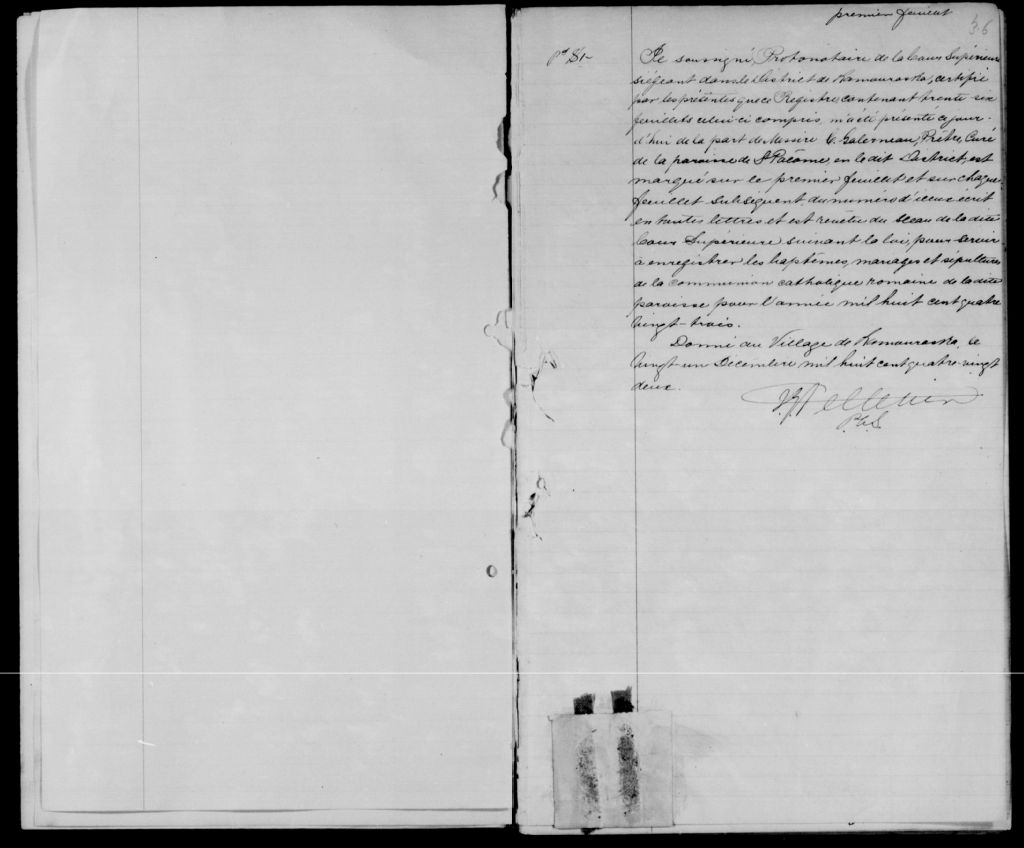 premier feuillet
36
Je soussigné, Protonotaire de la Cour Supérieure
siégeant dans le District de Kamouraska, certifie
par les présentes que ce Registre, contenant trente-six
feuillets celui-ci compris, m'a été présenté ce jour-
d'hui de la part de Messire C. Galerneau, Prêtre, Curé
de la paroisse de St Pacôme, en le dit District, est
marqué sur le premier feuillet et sur chaque
feuillet subséquent du numéro d'iceux écrit
en toutes lettres et est revêtu du sceau de la dite
Cour Supérieure suivant la loi, pour servir
à enregistrer les baptêmes, mariages et sépultures
de la communion catholique romaine de la dite
paroisse pour l'année mil huit cent quatre
vingt-trois.
Donné au Village de Kamouraska, le
vingt-un Décembre mil huit cent quatre-vingt
deux.
Pelletier
P.C.S.